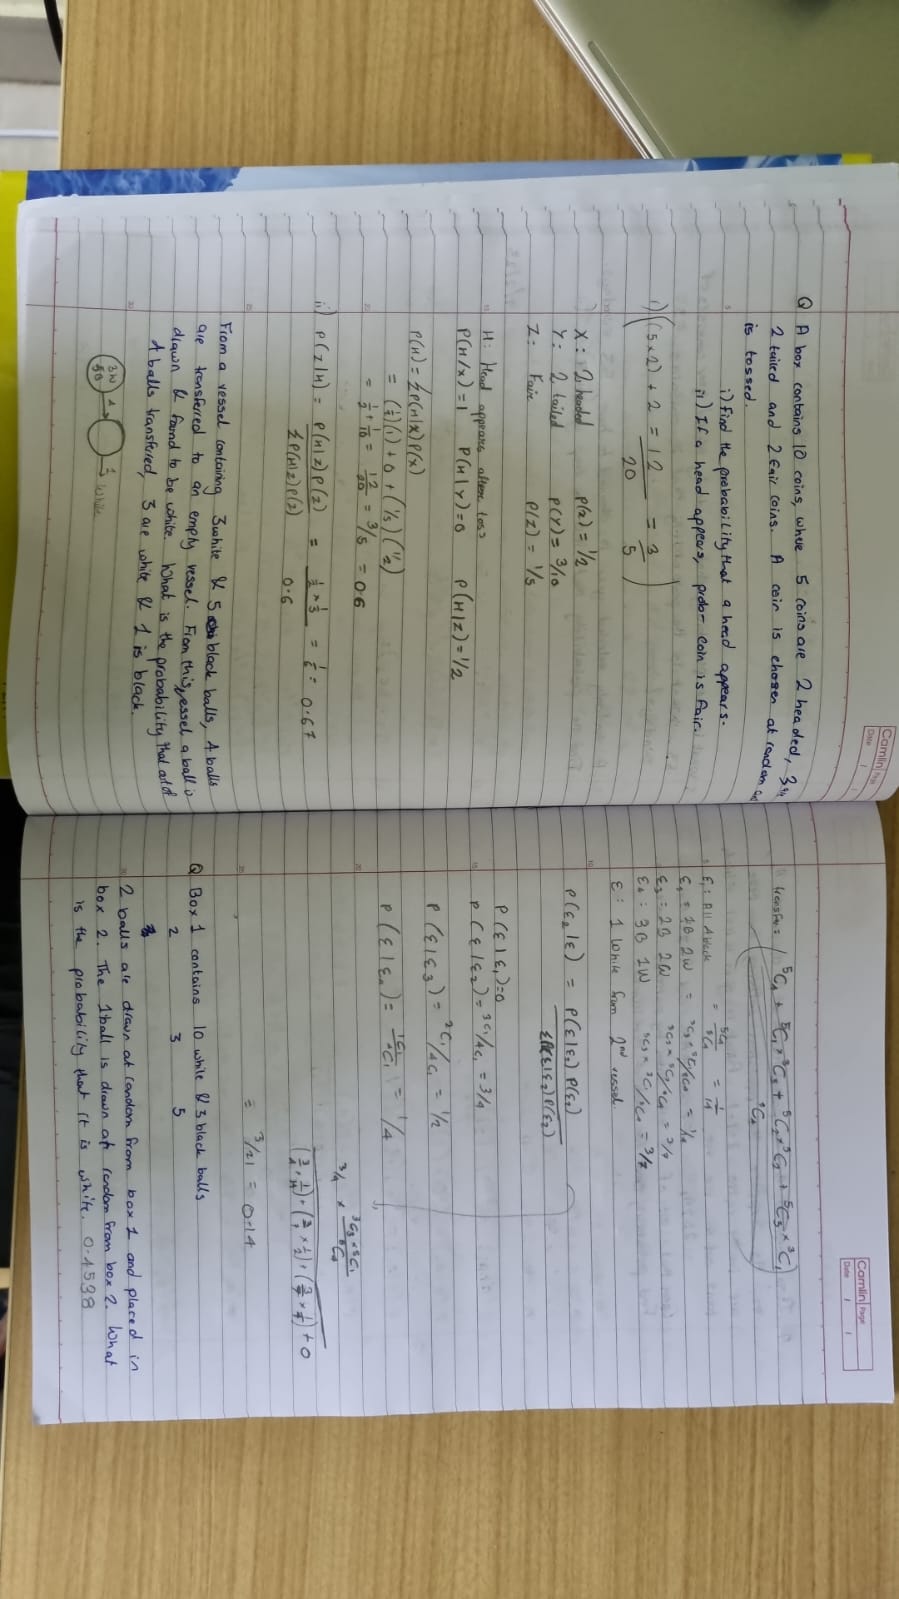 Camlin Page
Date / /
Q A box contains 10 coins, where 5 coins are 2 headed, 3 are
2 tailed and 2 fair coins. A coin is chosen at random and
is tossed.
i) Find the probability that a head appears.
ii) If a head appears, prob- coin is fair.
i) ((5×2) + 2 = 12/20 = 3/5)
X: 2 headed P(x) = 1/2
Y: 2 tailed P(Y) = 3/10
Z: Fair P(Z) = 1/5
H: Head appears after toss
P(H/x) = 1 P(H|Y) = 0 P(H|Z) = 1/2
P(H) = ΣP(H|x)P(x)
= (1/2)(1) + 0 + (1/5)(1/2)
= 1/2 + 1/10 = 12/20 = 3/5 = 0.6
ii) P(Z|H) = P(H|Z)P(Z) / ΣP(H|Z)P(Z) = / 0.6 = 1/6 = 0.67
From a vessel containing 3 white & 5 black balls, 4 balls
are transferred to an empty vessel. From this vessel a ball is
drawn & found to be white. What is the probability that out of
4 balls transferred, 3 are white & 1 is black.
3W 5B 4 1 White
Camlin Page
Date / /
transfer
E1: All 4 black = = 1/14
E3 = 2B 2W = 3/7
E4: 3B 1W = 3/7
E: 1 White from 2nd vessel
P(E2|E) = P(E|E2) P(E2) / ΣP(E|E2)P(E2)
P(E|E1) = 0
P(E|E2) = 3C1/4C1 = 3/4
P(E|E3) = 2C1/4C1 = 1/2
P(E|E4) = 1C1/4C1 = 1/4
3/4 × 3C3×5C1/8C4
= 3/21 = 0.14
Q Box 1 contains 10 white & 3 black balls
2 3 5
2 balls are drawn at random from box 1 and placed in
box 2. The 1 ball is drawn at random from box 2. What
is the probability that it is white. 0.4538